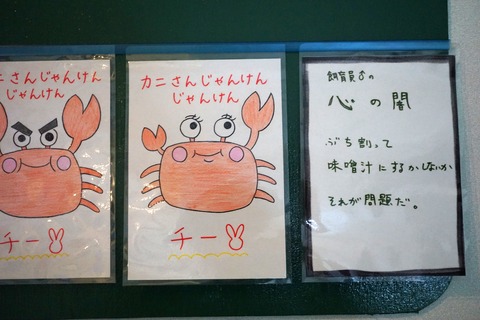 ニさんじゃんけん
じゃんけん
チー
カニさんじゃんけん
じゃんけん
チー
心の闇
ぶち割って
味噌汁にするかしないか
それが問題だ。